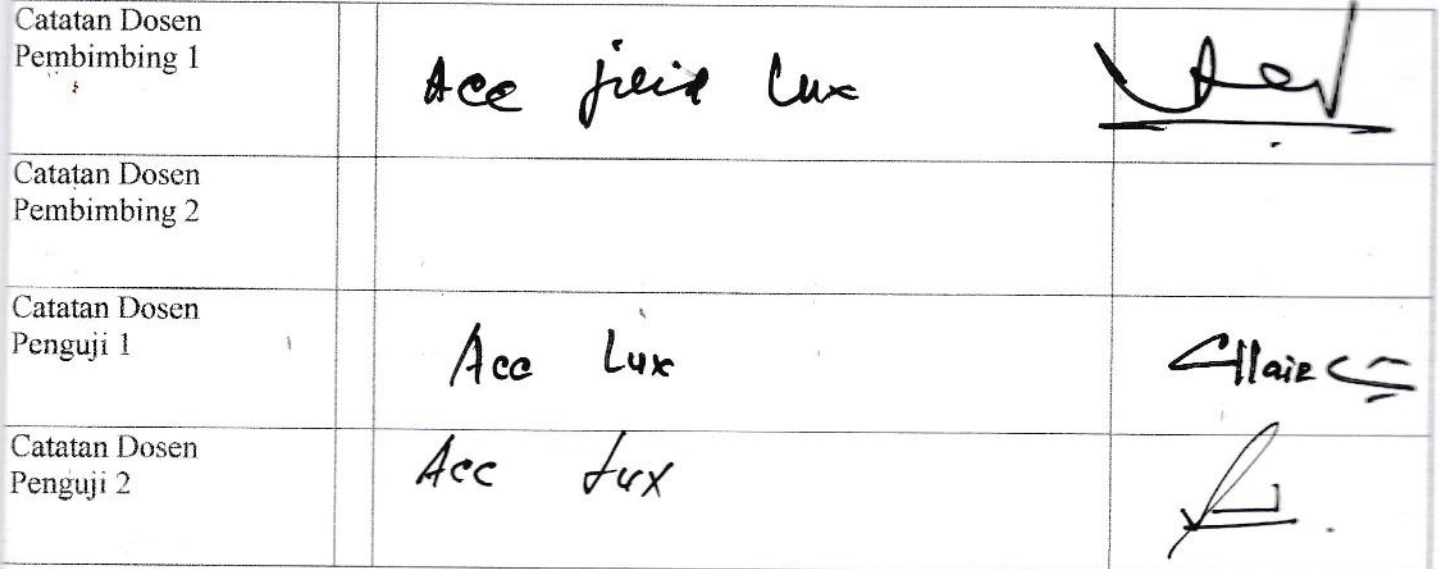 Catatan Dosen
Pembimbing 1
Acc jilid Lux
Catatan Dosen
Pembimbing 2
Catatan Dosen
Penguji 1
Acc Lux
Catatan Dosen
Penguji 2
Acc Lux